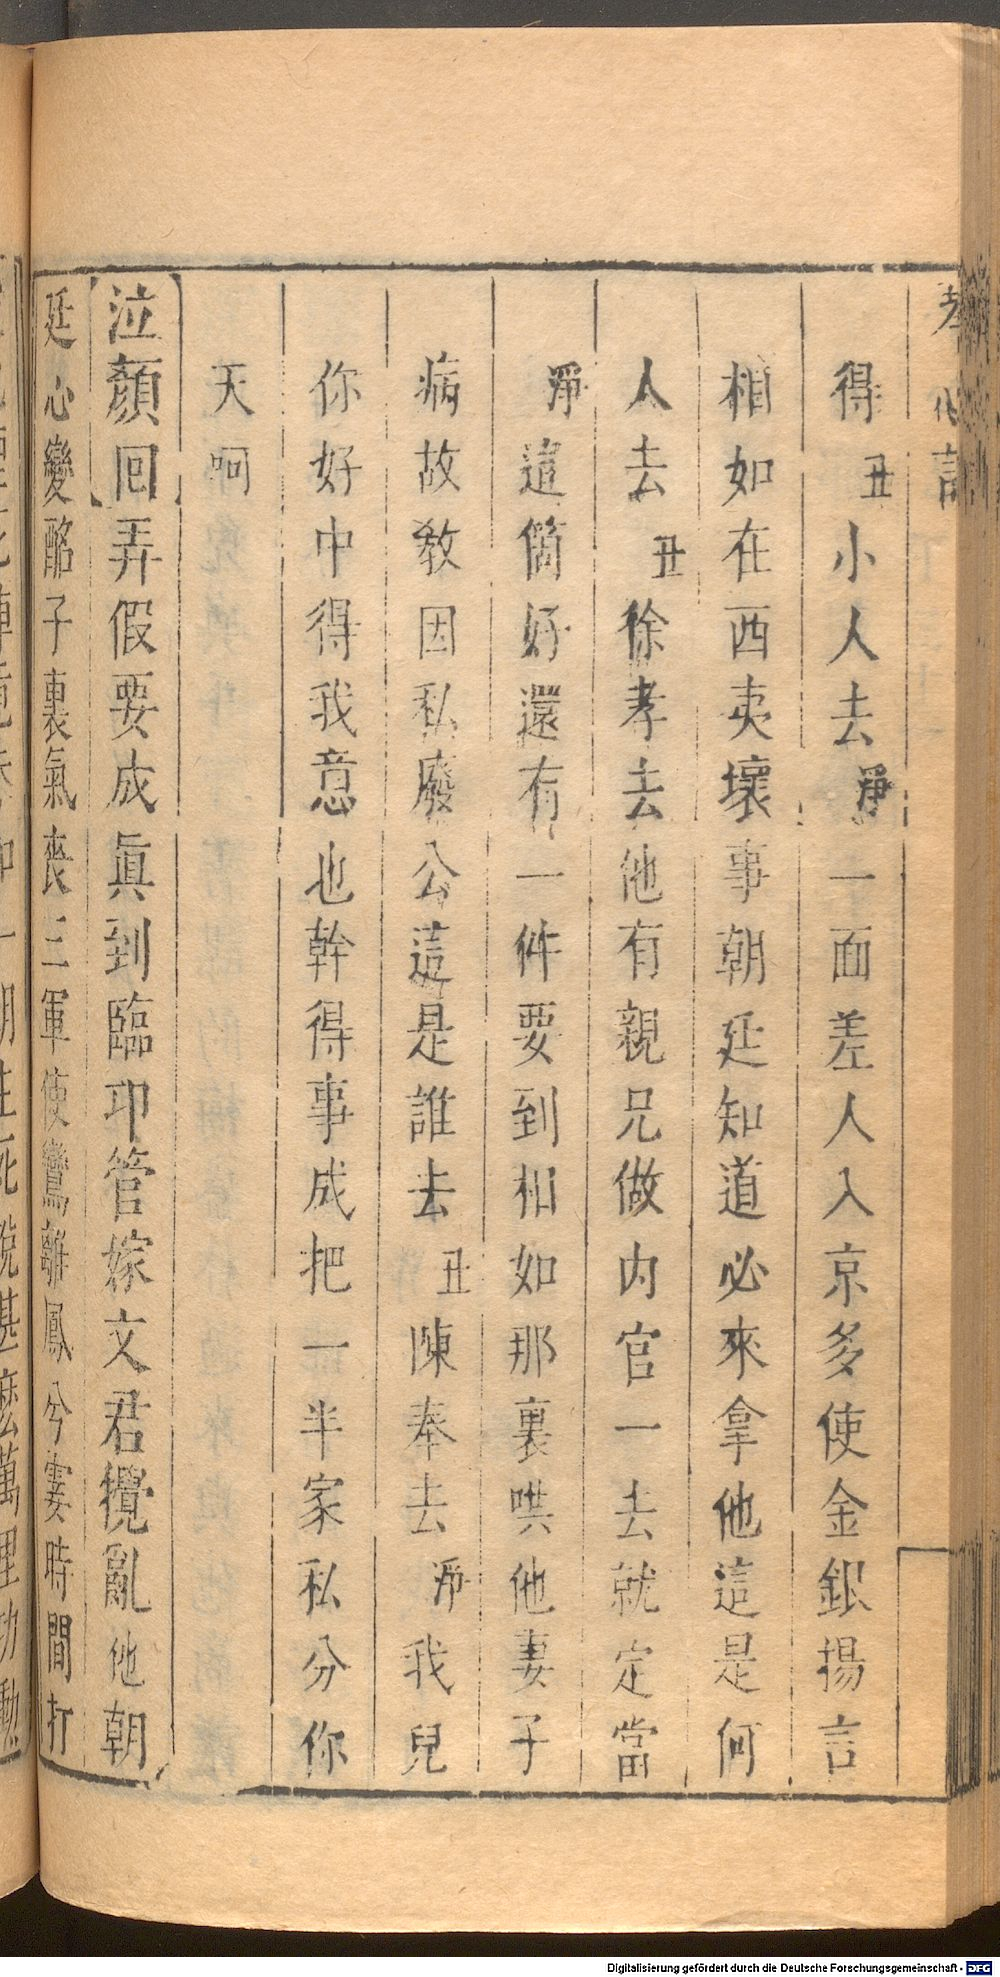 得丑小人去淨一面差人入京多使金銀揚言
相如在西夷壞事朝廷知道必來拿他這是何
人去丑徐孝去他有親兄做內官一去就定當
淨這箇好還有一件要到相如那裏哄他妻子
病故教因私廢公這是誰去丑陳奉去淨我兒
你好中得我意也幹得事成把一半家私分你
天呵
泣顏回弄假要成眞到臨卭管嫁文君攪亂他朝
廷心變酩子裏氣喪三軍使鸞離鳳兮霎時間打
Digitalisierung gefördert durch die Deutsche Forschungsgemeinschaft - DFG